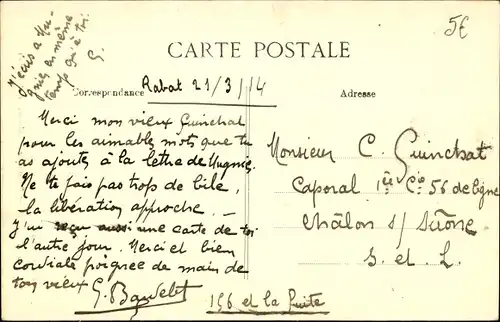 J'écris à Hu-
gnies en même
temps qu'à toi.
G.
5E
CARTE POSTALE
Correspondance
Adresse
Rabat 21/3/14
Merci mon vieux Guinchat
pour les aimables mots que tu
as ajoutés à la lettre de Hugnies.
Ne te fais pas trop de bile,
la libération approche. —
J'ai reçu aussi une carte de toi
l'autre jour. Merci et bien
cordiale poignée de main de
ton vieux G. Baudelet
196 et la fuite
Monsieur C. Guinchat
Caporal 1ère Cie 56 de ligne
Châlon s/ Saône
S. et L.